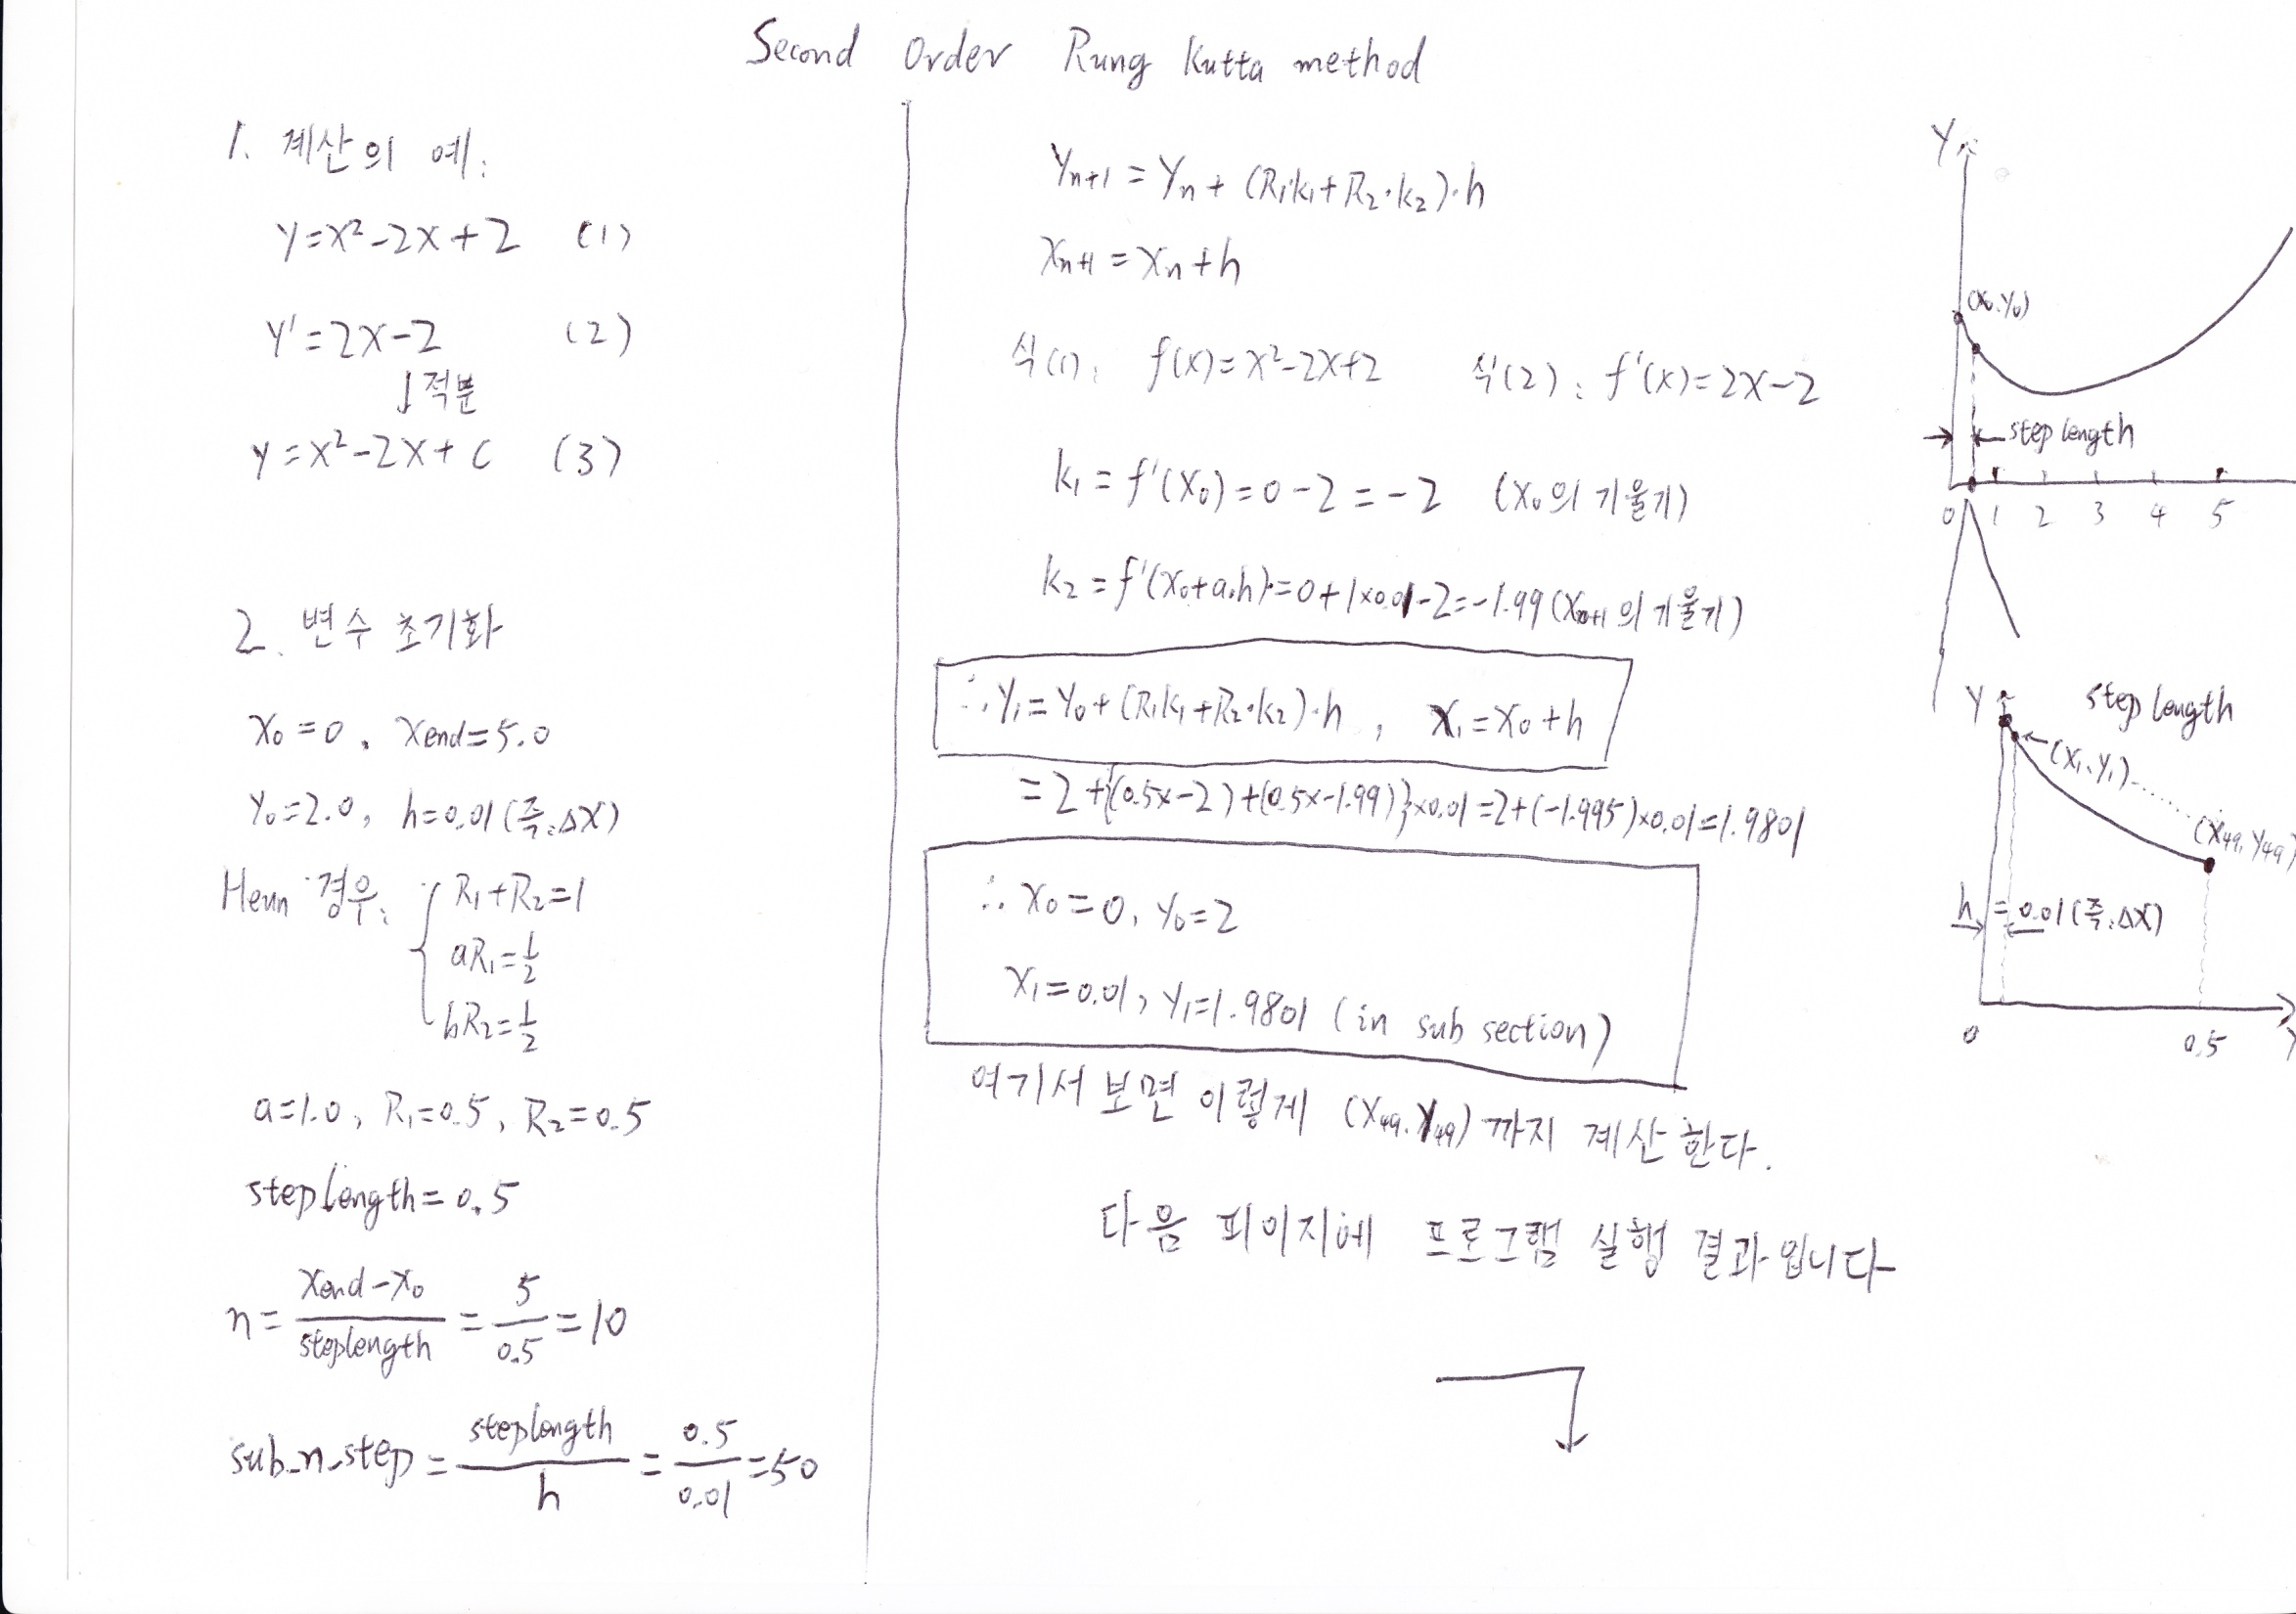 Second Order Rung Kutta method
1. 계산의 예:
y=x²-2x+2 (1)
y'=2x-2 (2)
↓적분
y=x²-2x+c (3)
2. 변수 초기화
x₀=0, xend=5.0
y₀=2.0, h=0.01(즉:Δx)
Heun 경우:
R₁+R₂=1
aR₁=1/2
bR₂=1/2
a=1.0, R₁=0.5, R₂=0.5
steplength=0.5
n=(xend-x₀)/steplength=5/0.5=10
sub_n_step=steplength/h=0.5/0.01=50
Yn+1=Yn+(R₁k₁+R₂·k₂)·h
xn+1=xn+h
식(1): f(x)=x²-2x+2 식(2): f'(x)=2x-2
k₁=f'(x₀)=0-2=-2 (x₀의 기울기)
k₂=f'(x₀+a·h)=0+1×0.01-2=-1.99(의 기울기)
∴Y₁=Y₀+(R₁k₁+R₂·k₂)·h, x₁=x₀+h
=2+{(0.5x-2)+(0.5x-1.99)}×0.01=2+(-1.995)×0.01=1.9801
∴x₀=0, y₀=2
x₁=0.01, y₁=1.9801 (in sub section)
여기서 보면 이렇게 (x₄₉,y₄₉)까지 계산한다.
다음 피이지에 프로그램 실행 결과입니다
Y
(x₀,y₀)
step length
0 1 2 3 4 5
Y step length
(x₁,y₁)
(x₄₉,y₄₉)
h=0.01(즉:Δx)
0 0.5